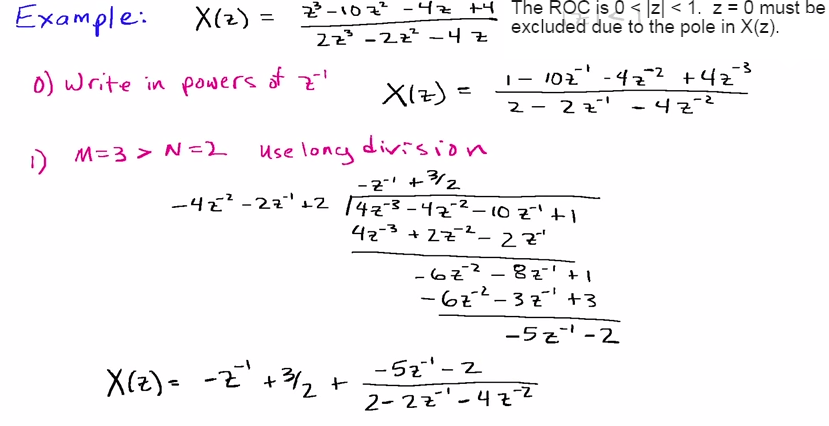 Example: X(z) = (z³ - 10z² - 4z + 4) / (2z³ - 2z² - 4z) The ROC is 0 < |z| < 1. z = 0 must be excluded due to the pole in X(z).
0) Write in powers of z⁻¹ X(z) = (1 - 10z⁻¹ - 4z⁻² + 4z⁻³) / (2 - 2z⁻¹ - 4z⁻²)
1) M=3 > N=2 Use long division
-z⁻¹ + 3/2
-4z⁻² - 2z⁻¹ + 2 | 4z⁻³ - 4z⁻² - 10z⁻¹ + 1
4z⁻³ + 2z⁻² - 2z⁻¹
-6z⁻² - 8z⁻¹ + 1
-6z⁻² - 3z⁻¹ + 3
-5z⁻¹ - 2
X(z) = -z⁻¹ + 3/2 + (-5z⁻¹ - 2) / (2 - 2z⁻¹ - 4z⁻²)